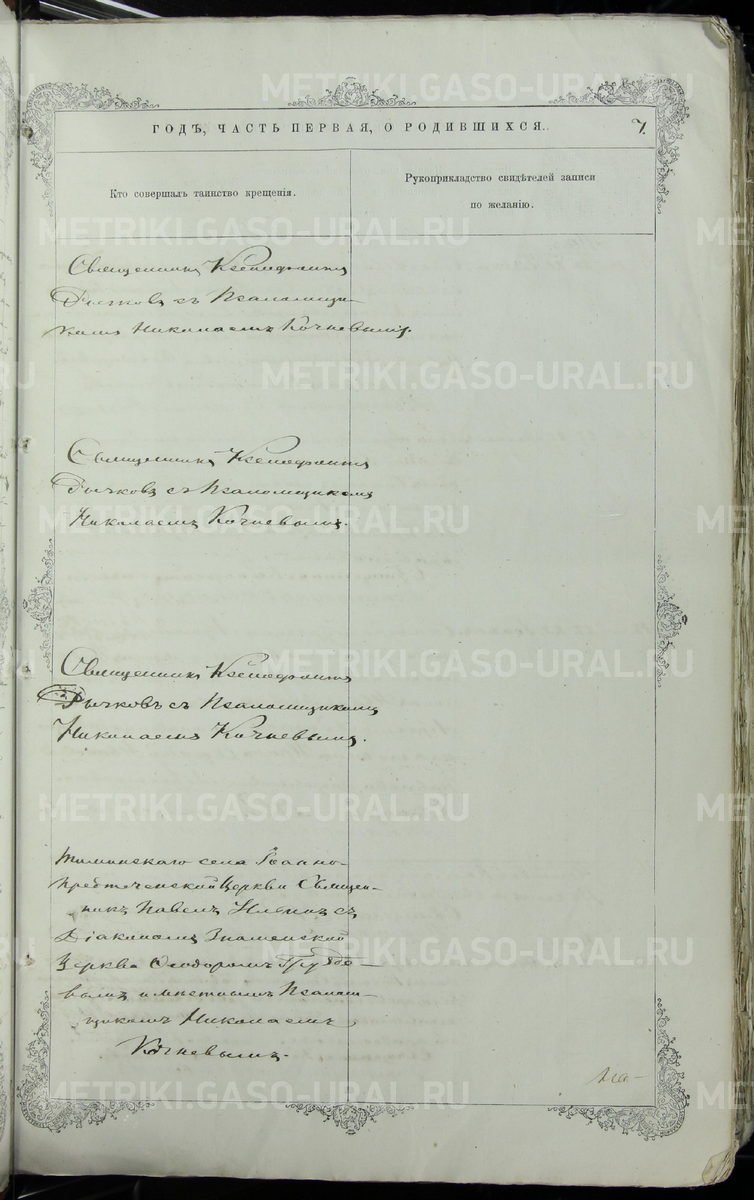 ГОДЪ, ЧАСТЬ ПЕРВАЯ, О РОДИВШИХСЯ.
7.
Кто совершалъ таинство крещенія.
Рукоприкладство свидѣтелей записи
по желанію.
Священникъ Ксенофонтъ
Рычковъ съ Псаломщи-
комъ Николаемъ Кочневымъ.
Священникъ Ксенофонтъ
Рычковъ съ Псаломщикомъ
Николаемъ Кочневымъ.
Священникъ Ксенофонтъ
Рычковъ съ Псаломщикомъ
Николаемъ Кочневымъ.
села Іоанно-
предтеченской Церкви Священ-
никъ Павелъ съ
Діакономъ Знаменской
Церкви Ѳеодоромъ
вымъ и мѣстнымъ Псалом-
щикомъ Николаемъ
Кочневымъ.
METRIKI.GASO-URAL.RU